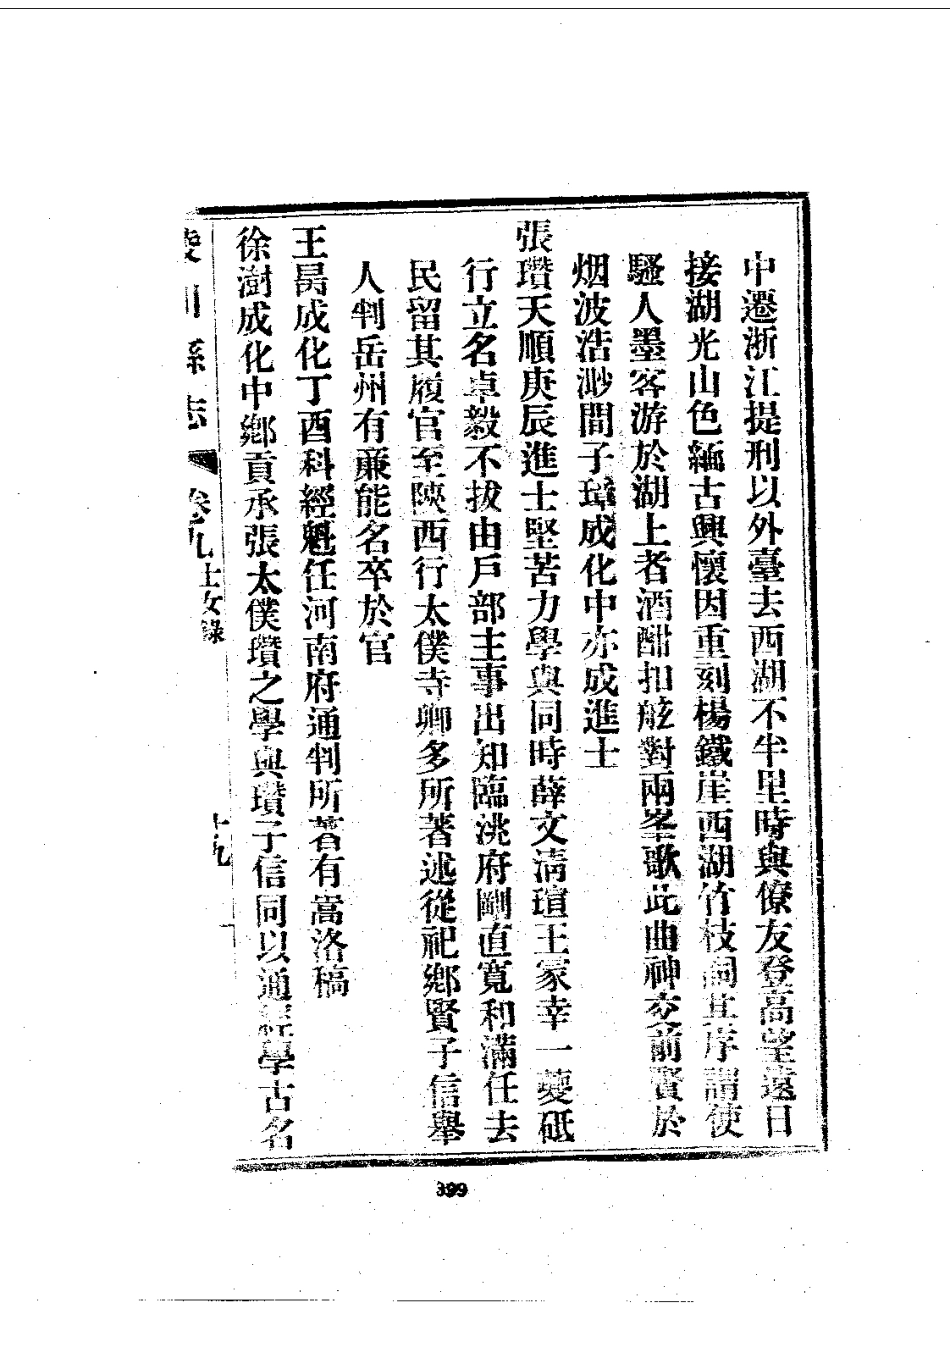 中遷浙江提刑以外臺去西湖不半里時與僚友登高望遠日
接湖光山色緬古興懷因重刻楊鐵崖西湖竹枝詞其序謂使
騷人墨客游於湖上者酒酣扣舷對兩峯歌此曲神交前賢於
烟波浩渺間子璋成化中亦成進士
張瓚天順庚辰進士堅苦力學與同時薛文清瑄王冢幸一夔砥
行立名卓毅不拔由戶部主事出知臨洮府剛直寬和滿任去
民留其履官至陝西行太僕寺卿多所著述從祀鄉賢子信舉
人判岳州有亷能名卒於官
王昺成化丁酉科經魁任河南府通判所著有嵩洛稿
徐澍成化中鄉貢承張太僕瓚之學與瓚子信同以通經學古名
陵川縣志 卷九 士女錄 十九
399